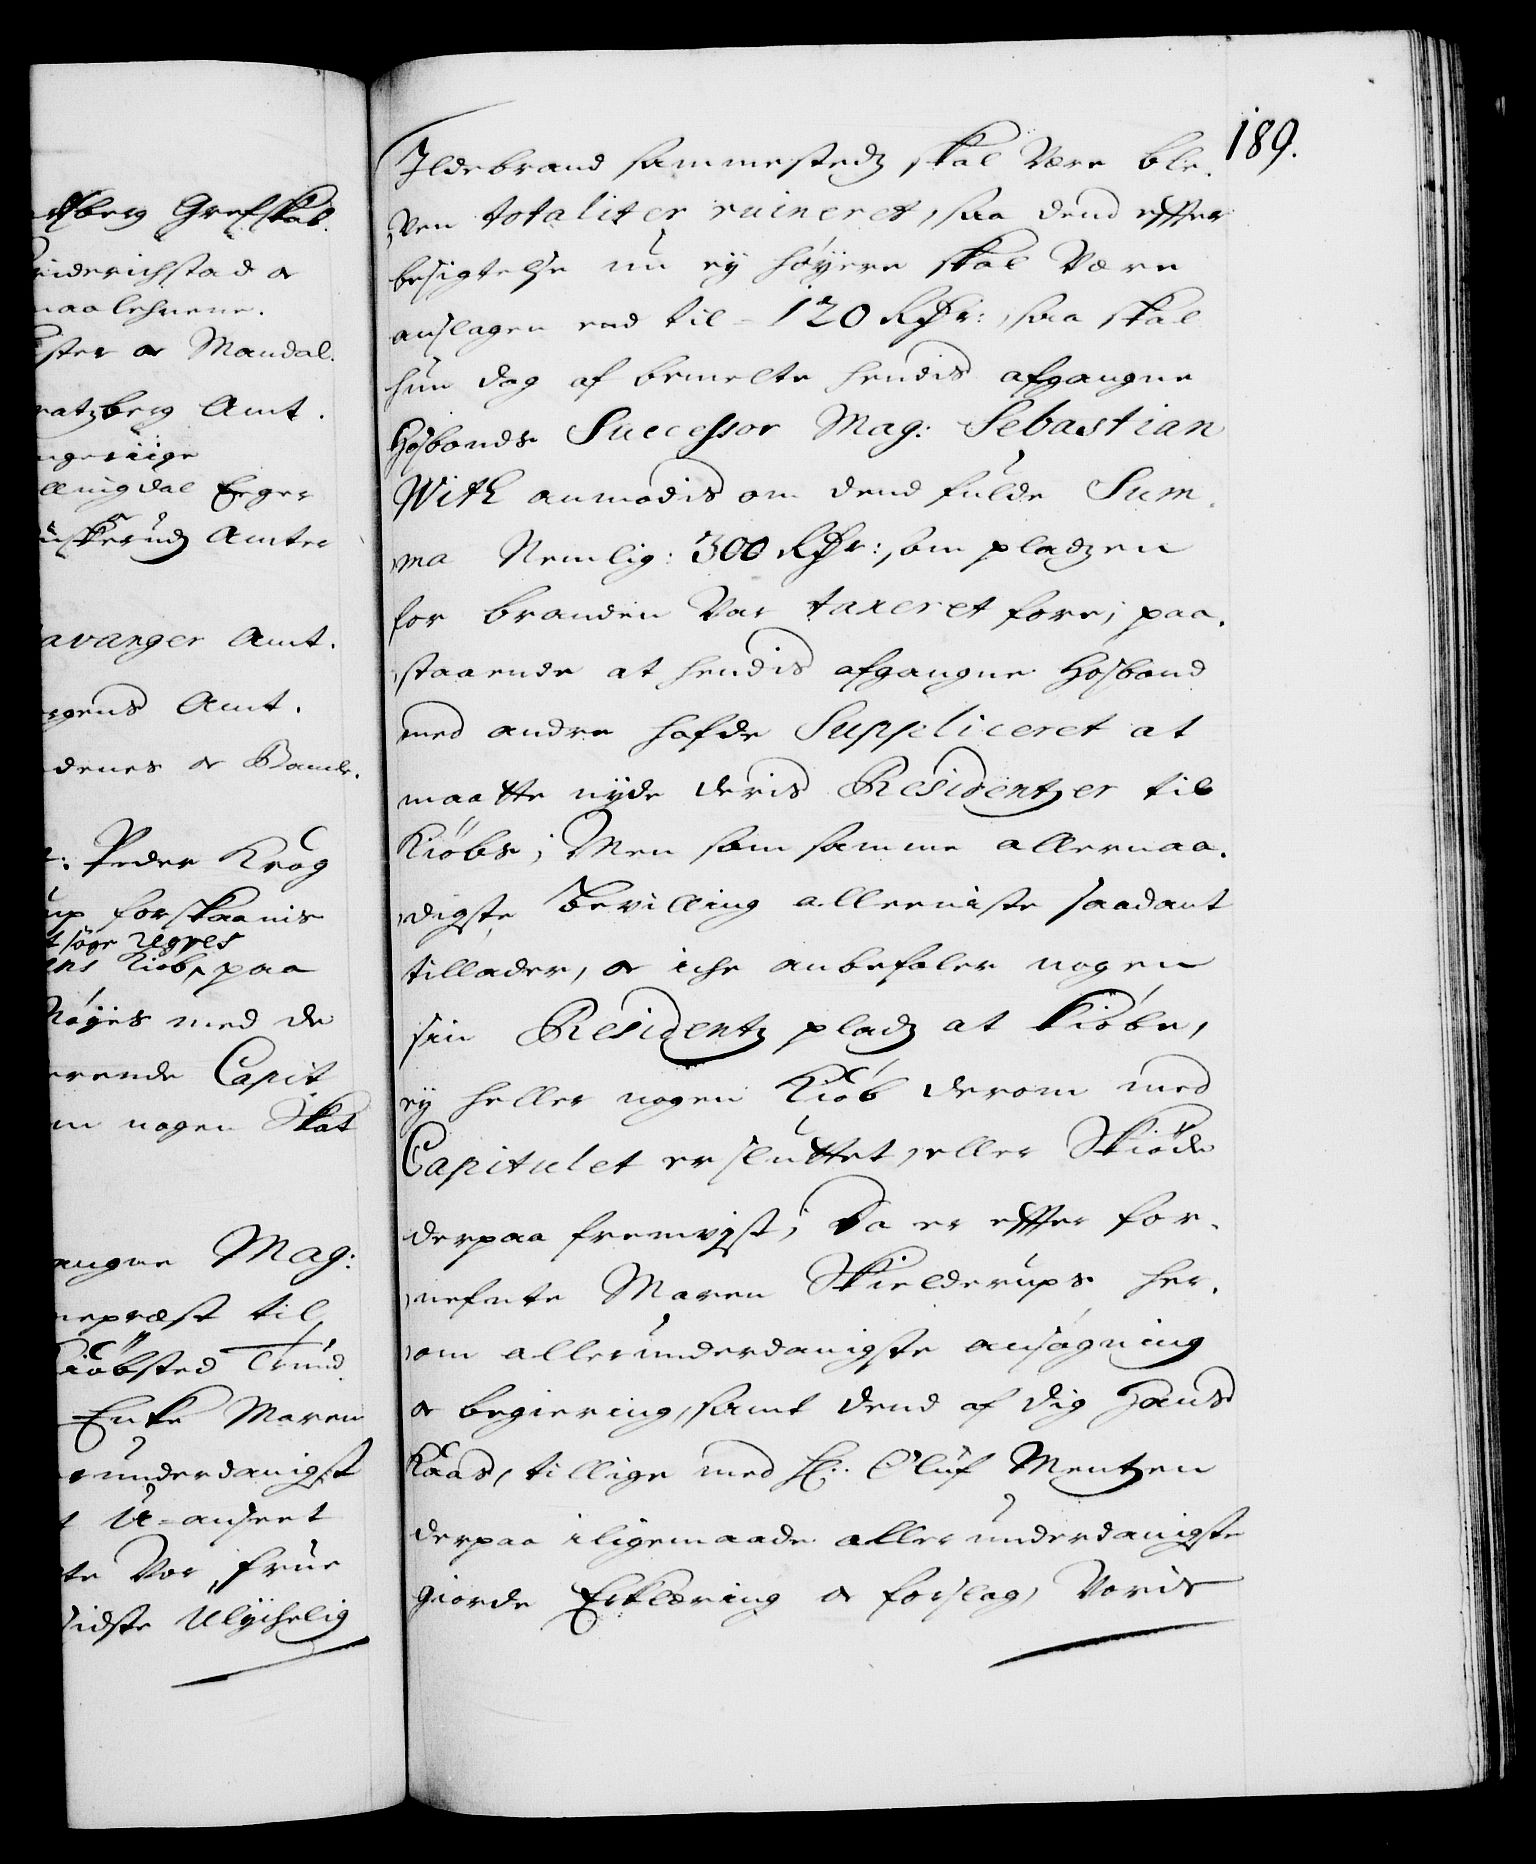 dsberg Grefskab.
riderichstad oc
maalehnene.
ster oc Mandal.
ratzberg Amt.
ngeriige
llingdal Eger
uskerudz Amter
avanger Amt.
rgens Amt.
denes oc Bamble.
r: Peder Krog
up forskaanis
t søge Regres
ens Kiøb, paa
Nøyes med de
erende Capit
m nogen Skat
angne Mag:
nepræst til
Kiøbsted Trund
Enke Maren
erunderdanigst
t U-anseet
te Vor Frue
sidste Ulychelig
189.
Ildebrand sammestedz skal Være ble-
ven totaliter ruineret, saa dend effter
besigtelse nu ey høyere skal Være
anslagen end til - 120 Rdr:, saa skal
hun dog af bemelte hendis afgangne
Hosbonds Successor Mag: Sebastian
With anmodis om dend fulde Sum-
ma Nemlig: 300 Rdr:, som pladzen
for branden Var taxeret fore, paa-
staaende at hendis afgangne Hosbond
med andre hafde Suppliceret at
maatte nyde deris Residentzer til
Kiøbs; Men som samme allernaa-
digste Bevilling alleeniste saadant
tillader, oc iche anbefaler nogen
sin Residentz pladz at Kiøbe,
ey heller nogen Kiøb derom med
Capitulet er sluttet, eller Skiøde
derpaa fremvist; Da er effter for-
nefnte Maren Skielderups her-
om allerunderdanigste ansøgning
oc begiering, samt dend af dig Hans
Kaas, tillige med Hr: Oluf Mentzen
derpaa iligemaade allerunderdanigste
giorde Erklæring oc forslag, Voris